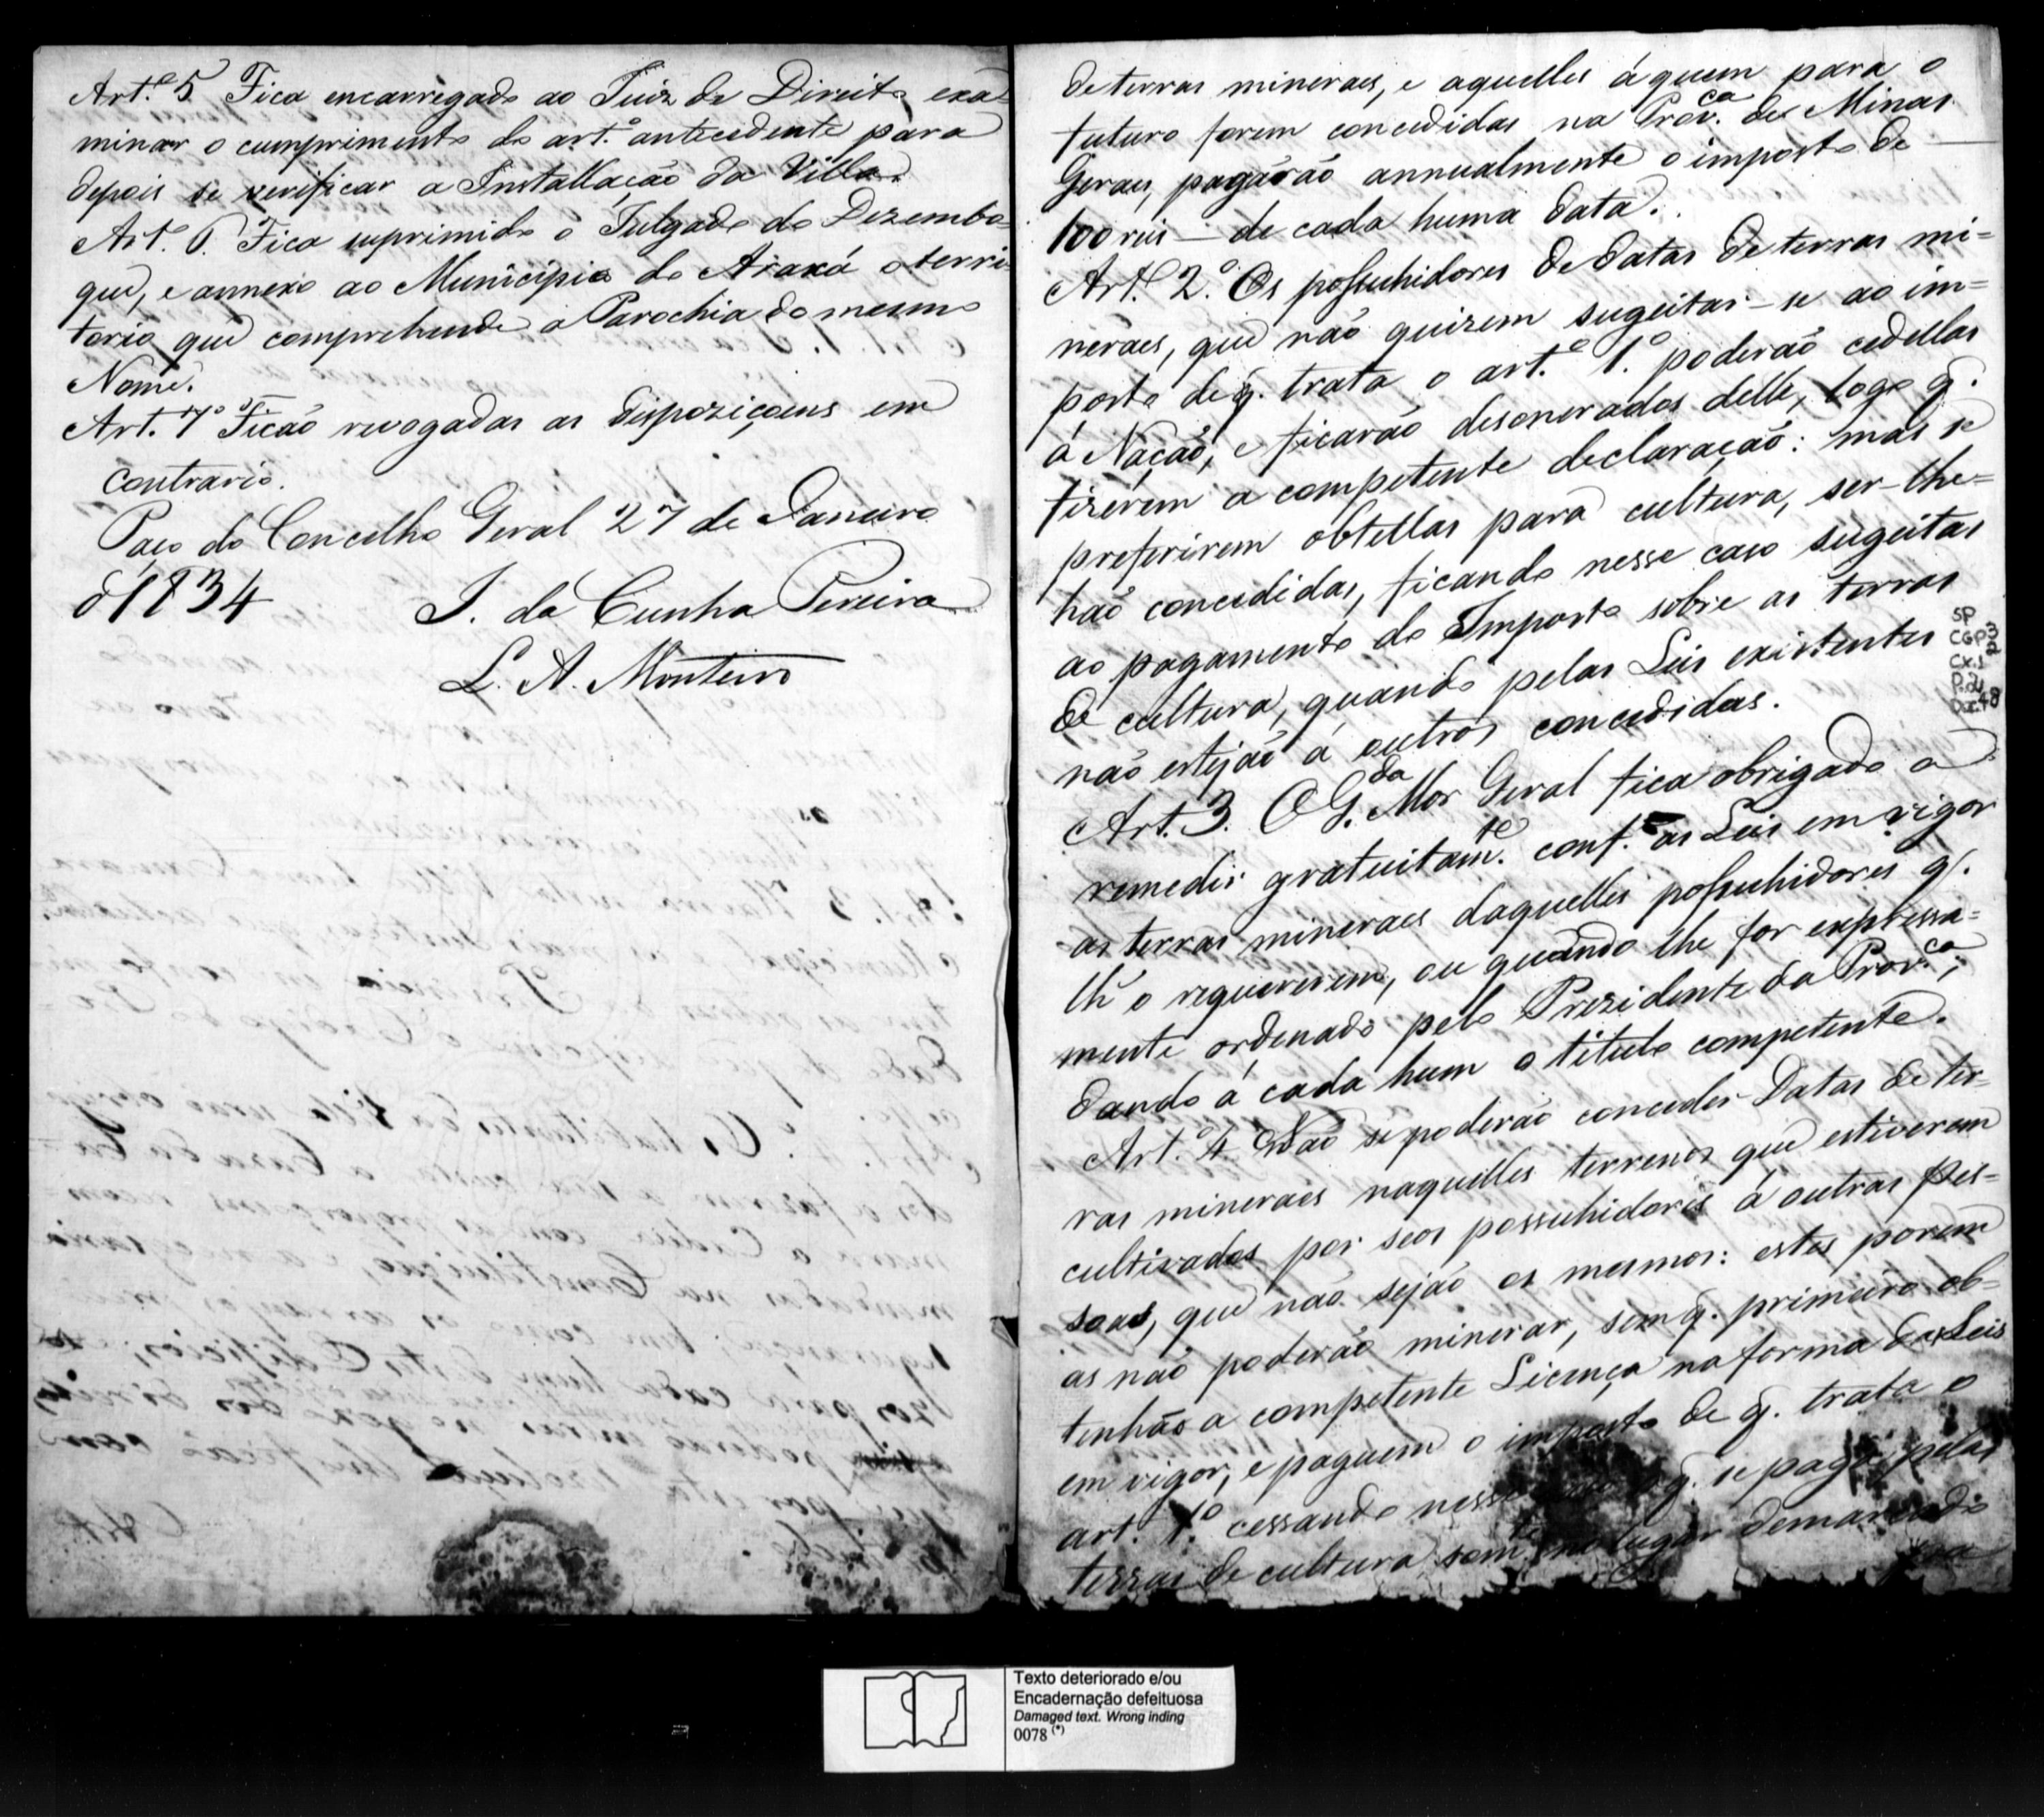 Art.º 5 Fica encarregado ao Juiz de Direito exa=
minar o cumprimento do art.º antecedente para
depois se verificar a Installação da Villa.
Art.º 6. Fica suprimido o Julgado do Dezembo=
que, e annexo ao Municipio do Araxá o terri=
torio que comprehende a Parochia do mesmo
Nome.
Art. 7º Ficão revogadas as dispoziçoens em
contrario.
Paço do Concelho Geral 27 de Janeiro
d 1834
J. da Cunha Pereira
L. A. Monteiro
de terras mineraes, e aquelles á quem para o
futuro forem concedidas na Prov.ca de Minas
Geraes, pagarão annualmente o imposto de
100 reis — de cada huma data.
Art.º 2.º Os possuhidores de datas de terras mi=
neraes, que não quizerem sugeitar-se ao im=
posto de q. trata o art.º 1.º poderão cedellas
á Nação, e ficarão desonerados delle, logo q.
fizerem a competente declaração: mas se
preferirem obtellas para cultura, ser-lhe=
hão concedidas, ficando nesse caso sugeitas
ao pagamento do Imposto sobre as terras
de cultura, quando pelas Leis existentes
não estejão á outros concedidas.
Art. 3. O G.da Mor Geral fica obrigado a
remedir gratuitam.te conf.e as Leis em vigor
as terras mineraes daquelles possuhidores q.
lh'o requererem, ou quando lhe for expressa=
mente ordenado pelo Prezidente da Prov.ca;
dando á cada hum o titulo competente.
Art.º 4 Não se poderão conceder Datas de ter=
ras mineraes naquelles terrenos que estiverem
cultivados por seos possuhidores á outras pes=
soas, que não sejão os mesmos: estes porem
as não poderão minerar, sem q. primeiro ob=
tenhão a competente Licença na forma das Leis
em vigor, e paguem o imposto de q. trata o
art. 1.º cessando nesse q. se paga pelas
terras de cultura som.te no lugar demarcado
SP
CGP3
Cx.1
P.2
Doc.48
Texto deteriorado e/ou
Encadernação defeituosa
Damaged text. Wrong inding
0078 (*)